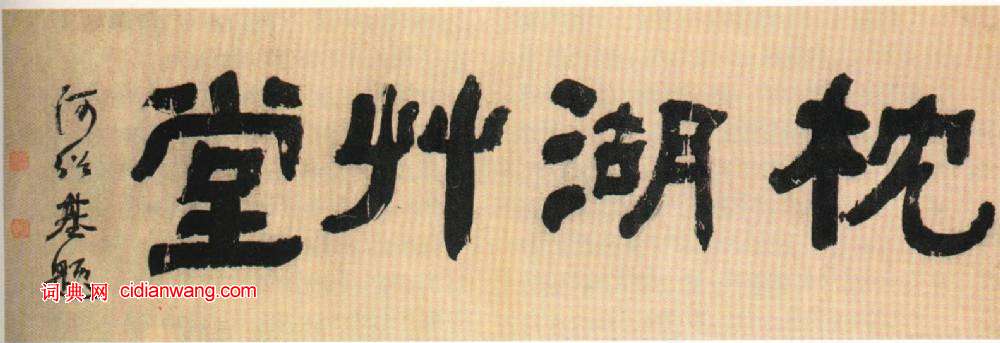 枕湖艸堂
何绍基題
词典网 cidianwang.com